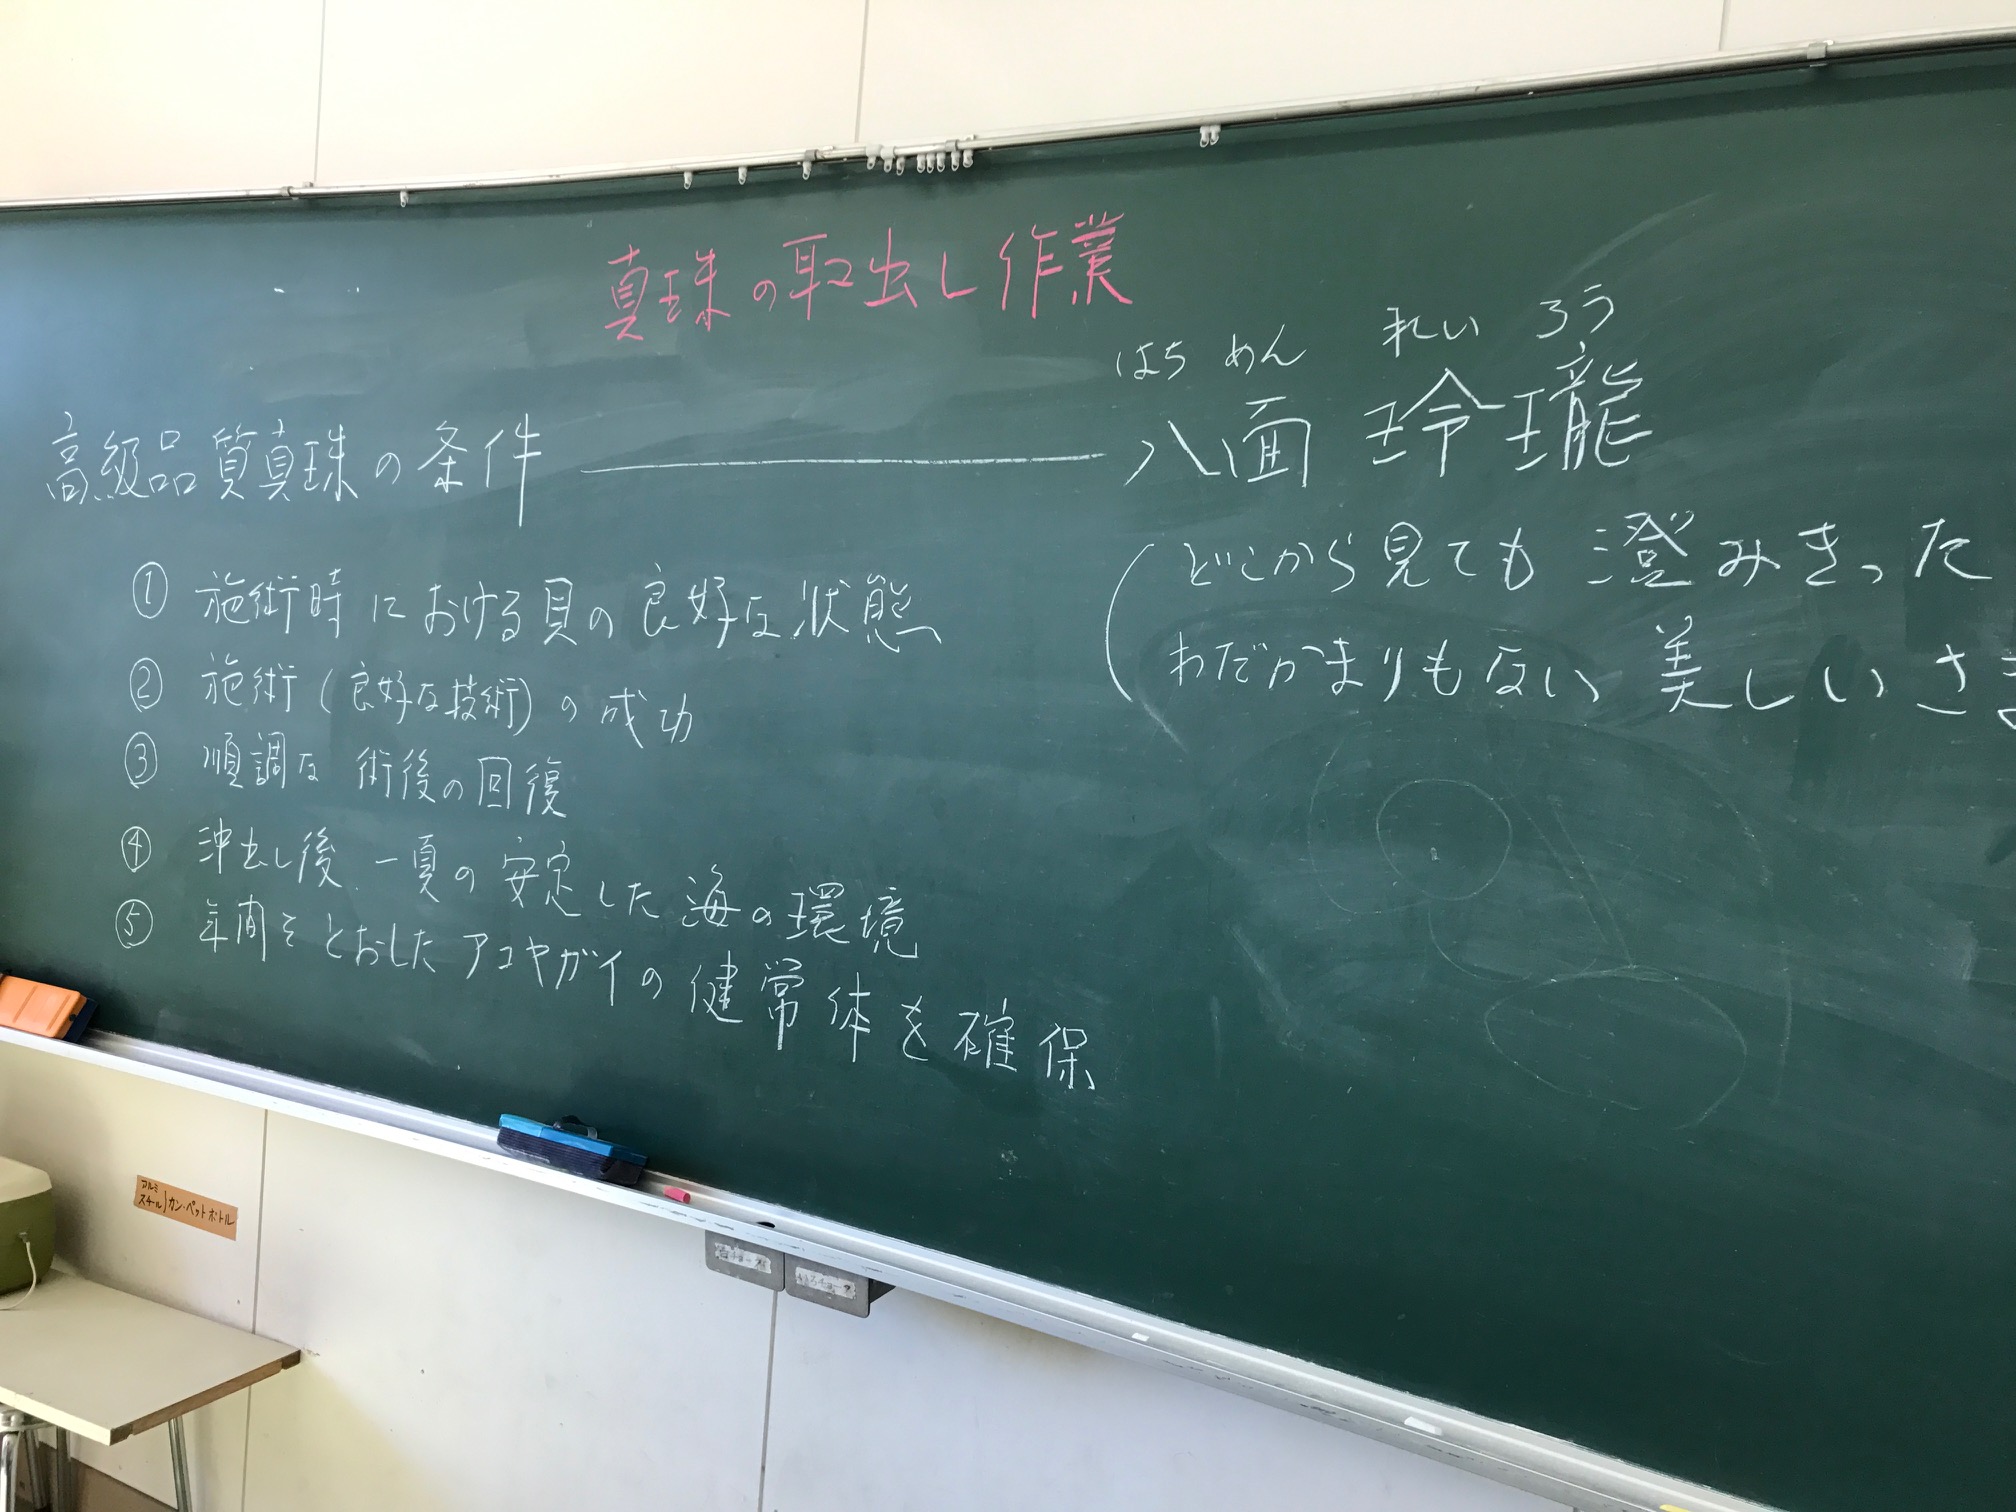 真珠の取出し作業
はち めん れい ろう
高級品質真珠の条件 ―――― 八面玲瓏
(どこから見ても澄みきった
わだかまりもない、美しいさま
① 施術時における貝の良好な状態
② 施術(良好な技術)の成功
③ 順調な術後の回復
④ 沖出し後、一夏の安定した海の環境
⑤ 年間をとおしたアコヤガイの健常体を確保
アルミ
スチール カン・ペットボトル